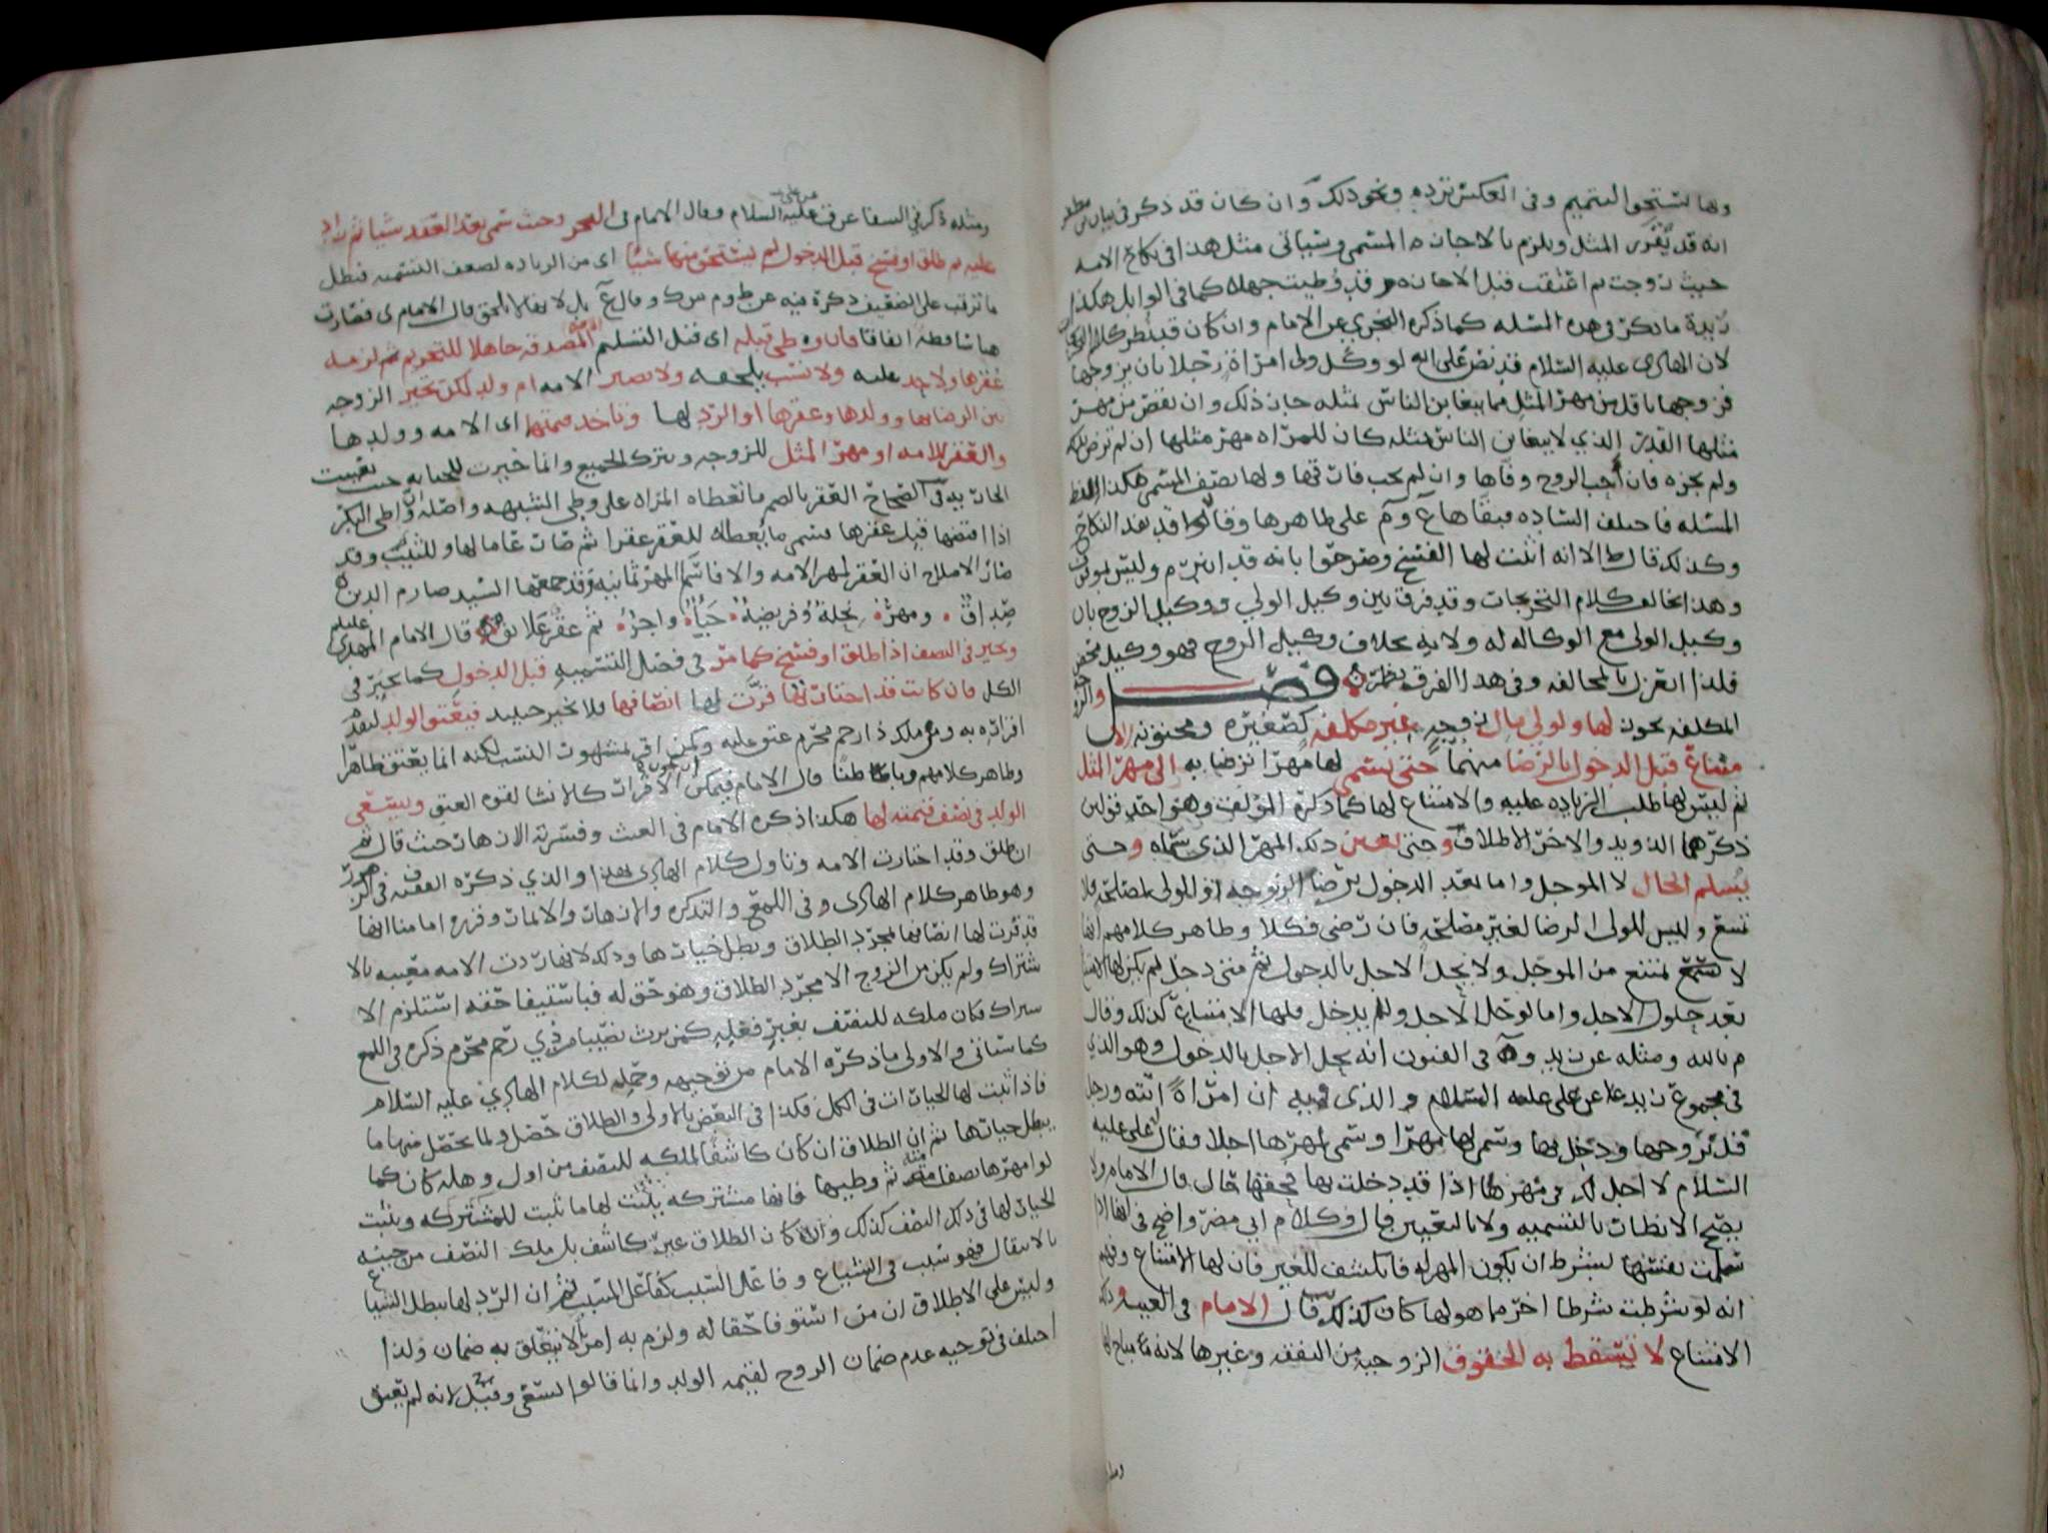 ولها تستحق التتميم وفي العكس ترده ونحو ذلك وان كان قد ذكر في بيان
انه قد يقوى المثل ويلزم بالاجازه المسمى وسياتي مثل هذا في نكاح الامه
حيث زوجت ثم اعتقت قبل الاجازه وقد وطيت جهلا كما في الوابل هكذا
في هذه المسله كما ذكره البحري عن الامام وان كان
لان الهادي عليه السلام قد نص على انه لو وكل ولي امراة رجلا بان يزوجها
فزوجها باقل من مهر المثل مما يتغابن الناس بمثله جاز ذلك وان نقص من مهر
مثلها القدر الذي لا يتغابن الناس بمثله كان للمراه مهر مثلها ان لم ترض بذلك
ولم يجزه فان احب الزوج وفاها وان لم يحب فارقها ولها نصف المسمى هكذا لفظ
المسله فاختلف الساده على ظاهرها وقالوا قد نفذ النكاح
وكذلك قال ط الا انه اثبت لها الفسخ وصرحوا بانه قد انبرم وليس بموقوف
وهذا يخالف كلام التخريجات وقد فرق بين وكيل الولي ووكيل الزوج بان
وكيل الولي مع الوكاله له ولايه بخلاف وكيل الزوج فهو وكيل محض
فلذا انعزل بالمخالفه وفي هذا الفرق نظر فصل
المكلفه يجوز لها ولولي مال زوجه غير مكلفه كصغيره ومجنونه الا
متناع قبل الدخول بالرضا منهما حتى يسمى لها مهرا ترضا به الى مهر المثل
ثم ليس لها طلب الزياده عليه والامتناع لها كما ذكره المؤلف وهو احد قولين
ذكرهما الذويد والاخر الاطلاق وحتى يعين ذلك المهر الذي سماه وحتى
يسلم الحال لا الموجل واما بعد الدخول برضا الزوجه او الولي لمصلحة فلا
تمتنع وليس للولي الرضا لغير مصلحة فان رضي فكلا وظاهر كلامهم انها
لا تمتنع من الموجل ولا يحل الاجل بالدخول ثم متى دخل لم يكن لها الامتناع
بعد حلول الاجل واما لو حل الاجل ولم يدخل فلها الامتناع كذلك وقال
م بالله ومثله عن زيد في الفنون انه يحل الاجل بالدخول وهو الذي
في مجموع زيد عن علي عليه السلام والذي فيه ان امراة اتته ورجل
قد تزوجها ودخل بها وسمى لها مهرا وسمى لمهرها اجلا فقال علي عليه
السلام لا اجل لك في مهرها اذا قد دخلت بها فحقها حال قال الامام ولا
يصح الانظار بالتسميه ولا بالتعيين قال وكلام ابي مضر واضح في انها اذا
سلمت نفسها بشرط ان يكون المهر له فانكشف للغير فان لها الامتناع وفهم
انه لو شرطت شرطا اخر مما هو لها كان كذلك قال الامام في الغيث وذلك
الامتناع لا تسقط به الحقوق الزوجيه من النفقه وغيرها لانه مباح لها
ومثله ذكر في الشفا عن ق عليه السلام وقال الامام في البحر وحيث سمى بعد العقد شيا ثم زاد
عليه ثم طلق او فسخ قبل الدخول لم تستحق منها شيا اي من الزياده لضعف التسميه فبطل
ما ترتب على الضعيف ذكره فيه عن ط وم وقال بل لا بقا لالحق قال الامام ى فصارت
هبا ساقطة اتفاقا فان وطي قبله اي قبل التسليم المصدقه جاهلا للتحريم ثم لزمه
عقرها ولا حد عليه ولا نسب يلحقه ولا تصير الامه ام ولد لكن تخير الزوجه
بين الرضا بها وولدها وعقرها او الرد لها وتاخذ قيمتها اي الامه وولدها
والعقر للامه او مهر المثل للزوجه وتترك الجميع وانما خيرت للجنايه حيث تعيبت
الجاريه في الصحاح العقر بالضم ما تعطاه المراه على وطي الشبهه واصله ان واطي البكر
اذا افتضها قبل عقرها فسمي ما يعطاه للعقر عقرا ثم صار عاما لها وللثيب وقد
صار الاصلاح ان العقر لمهر الامه والا فاسما المهر ثمانية وقد جمعها السيد صارم الدين
صداق ومهر نحلة وفريضة حباء واجر ثم عقر علائق قال الامام المهدي عليه
وتخير في النصف اذا طلق او فسخ كما مر في فصل التسميه قبل الدخول كما تخير في
الكل فان كانت قد اختارتها قررت لها انصافها فلا تخير حينيد فيعتق الولد لنفذ
اقراره به ومن ملك ذا رحم محرم عتق عليه وكمن اقر بمشهور النسب لكنه انما يعتق ظاهرا
وظاهر كلامهم وباطنا قال الامام فيمكن ان يكون الاقرار كالانشا لقوه العتق ويسعى
الولد في نصف قيمته لها هكذا ذكره الامام في الغيث وفسر به الازهار حيث قال ثم
ان طلق وقد اختارت الامه وتاول كلام الهادي بهذا والذي ذكره الفقيه ف في الزهور
وهو ظاهر كلام الهادي وفي اللمع والتذكره والازهار والاثمار وقرره امامنا انها
قد قررت لها انصافها بمجرد الطلاق وبطل خيارها وذلك لانها ردت الامه معيبه بالا
شتراك ولم يكن من الزوج الا مجرد الطلاق وهو حق له فباستيفا حقه استلزم الا
شتراك فكان ملكه للنصف بغير فعله كمن يرث نصيبا من ذي رحم محرم ذكره في اللمع
كما سياتي والاولى ما ذكره الامام من توجيهه وحمله لكلام الهادي عليه السلام
فاذا ثبت لها الخيار ان في الكل فكذا في البعض بالاولى والطلاق حصل ولما يحصل منها ما
يبطل خيارها ثم ان الطلاق ان كان كاشفا لملكه للنصف من اول وهله كان كما
لو امهرها نصف امة ثم وطيها فانها مشتركه يثبت لها ما ثبت للمشتركه ويثبت
الخيار لها في ذلك النصف كذلك وان كان الطلاق غير كاشف بل ملك النصف من حينه
بالانتقال فهو سبب في الشياع وفاعل السبب كفاعل المسبب ثم ان الرد لها يبطل الشياع
وليس على الاطلاق ان من استوفا حقا له ولزم به امر لا يتعلق به ضمان ولذا
اختلف في توجيه عدم ضمان الزوج لقيمه الولد وانما قالوا يسعى وقيل لانه لم يعتق